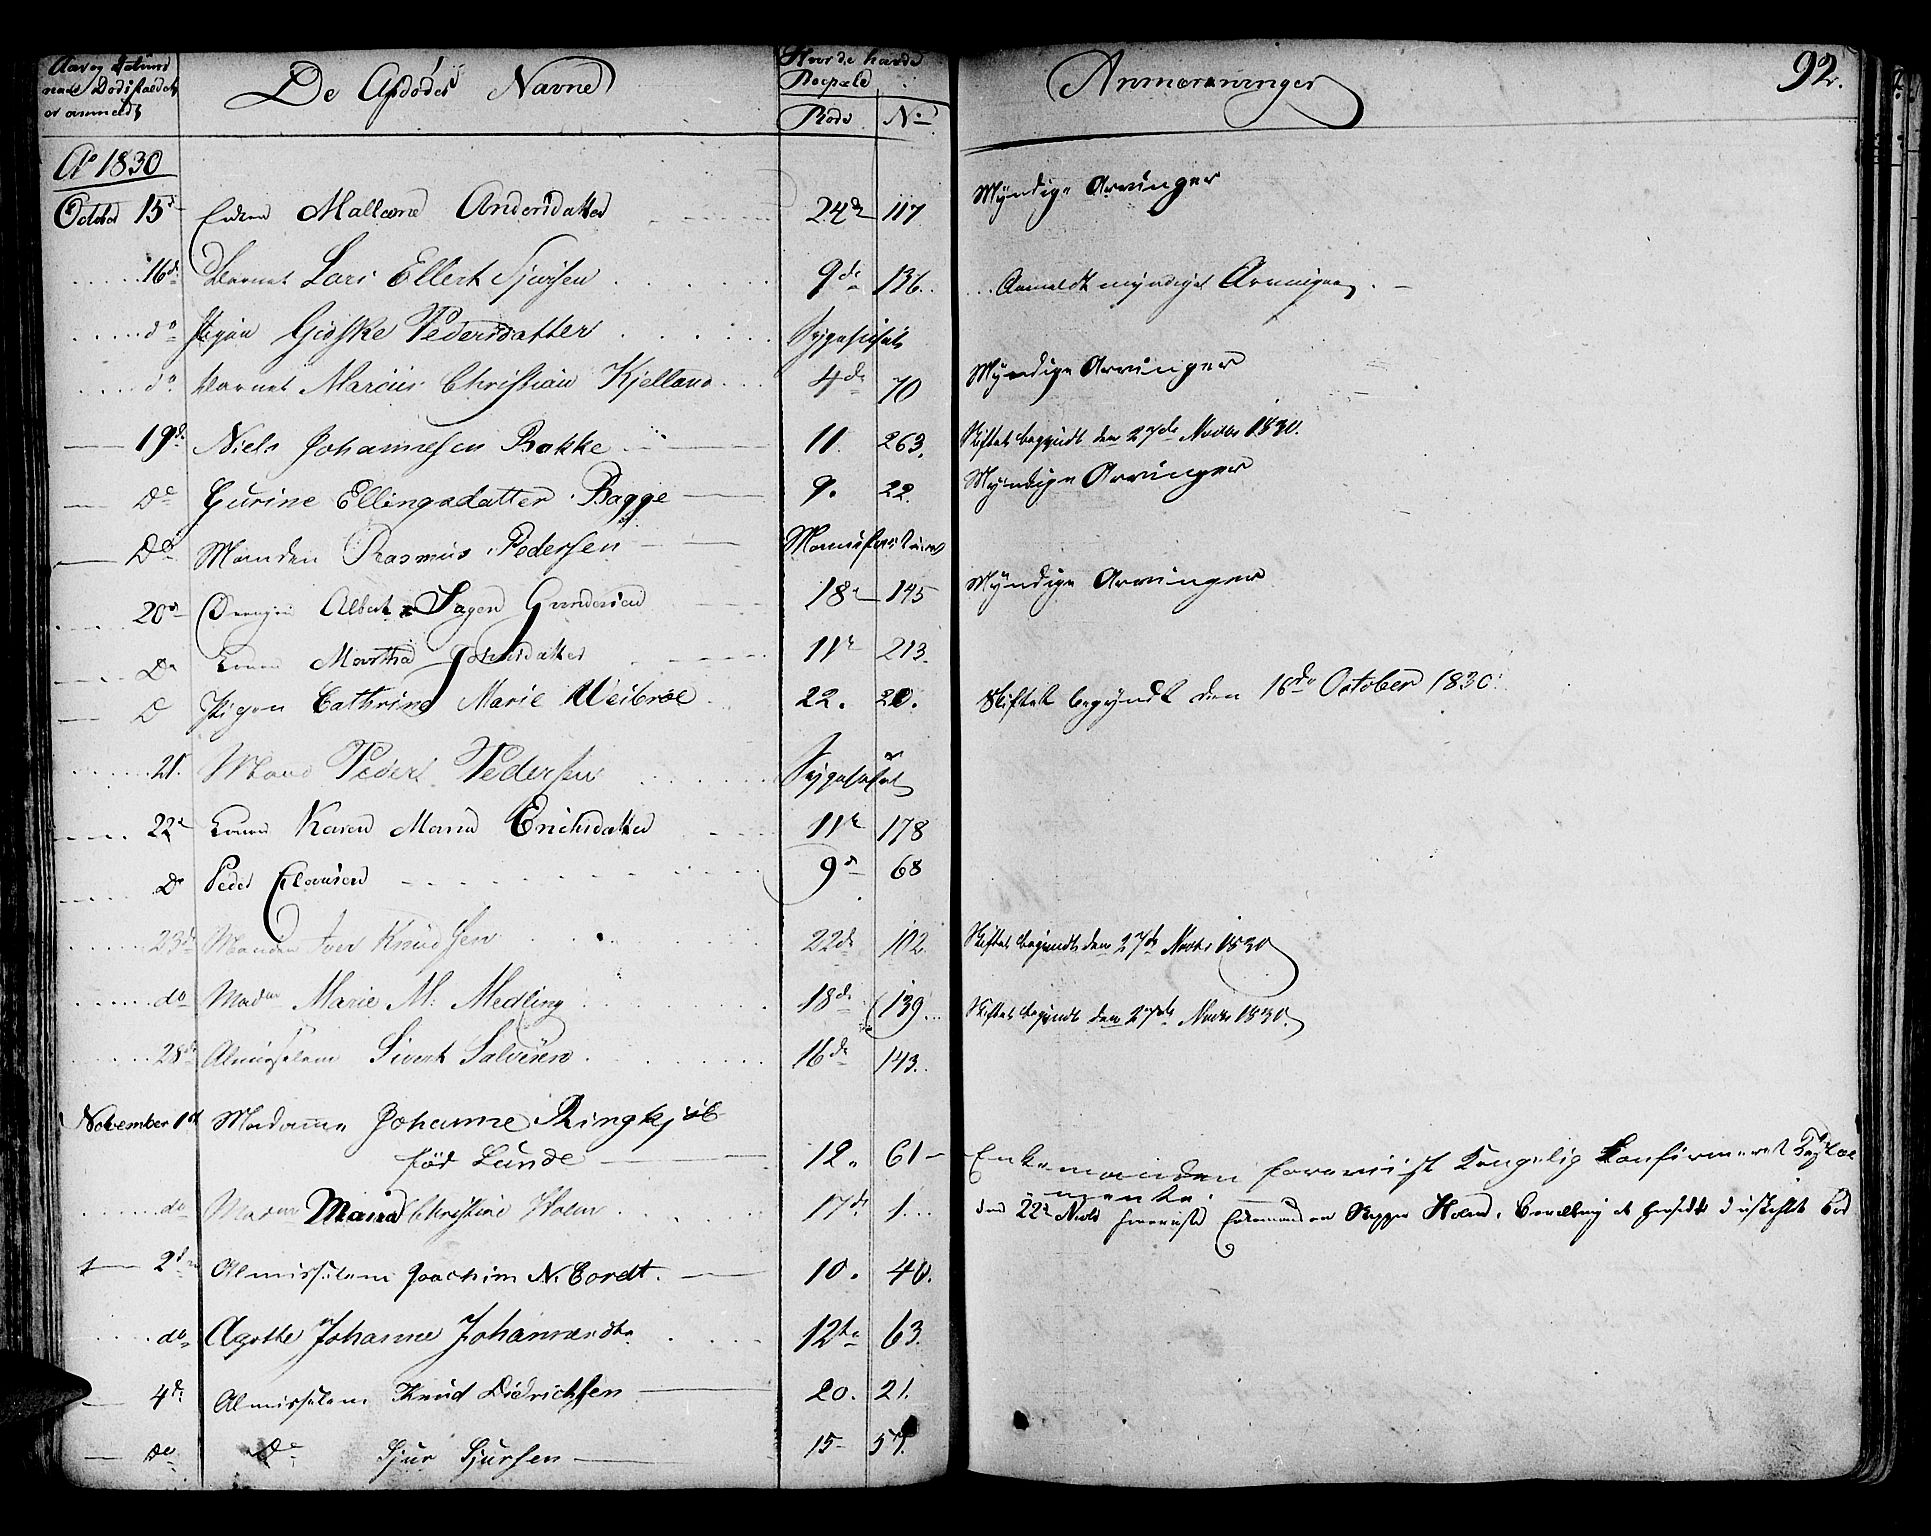 Aar og Datum
naar Dødsfaldet
er anmeldt
De Afdødes Navne
Hvor de havde
Bopæl
Rode No
Anmærkninger
92.
Ao 1830
Octobr 15d Enken Mallene Andersdatter 24d 117 Myndige Arvinger
16d Barnet Lars Ellert Sjursen 9de 136. Anmeldt myndige Arvinger
do Pigen Gidske Pedersdatter Sygehuset
do Barnet Marcus Christian Kjelland 4de 70 Myndige Arvinger
19d Niels Johannesen Bakke 11. 263. Skiftet begyndt den 27de Novbr 1830.
Do Gurine Ellingsdatter Bagge 9. 22. Myndige Arvinger
Do Manden Rasmus Pedersen
20d Drengen Albert Sagen Gundersen 18d 145 Myndige Arvinger
Do Konen Martha Johnsdatter 11t 213.
D Pigen Cathrine Marie Weibroe 22. 20. Skiftet begyndt den 16de October 1830.
21. Mand Peder Pedersen Sygehuset
22d Konen Karen Maria Erichsdatter 11t 178
Do Peder Clausen 9d 68
23d Manden Iver Knudsen 22de 102. Skiftet begyndt den 27de Novbr 1830
do Madm Marie M. Medling 18de 139. Skiftet begyndt den 27de Novbr 1830.
28de Almisselem Sivert Salvesen 16de 143.
November 1st Madamme Johanne Ringkjøb
fød Lunde 12. 61 Enkemanden foreviist Kongelig Confirmeret Testae
mente.
do Madm Maria Christine Holm 17de 1. den 22d Novb foreviste Enkemanden Holm, Bevilling at hensidde i uskiftet Boe
2d Almisselem Joachim N. Cordt. 10. 40.
do Agethe Johanne Johannesdtr 12te 63.
4de Almisselem Knud Didrichsen 20. 21.
Do Do Sjur Sjursen 15 57.